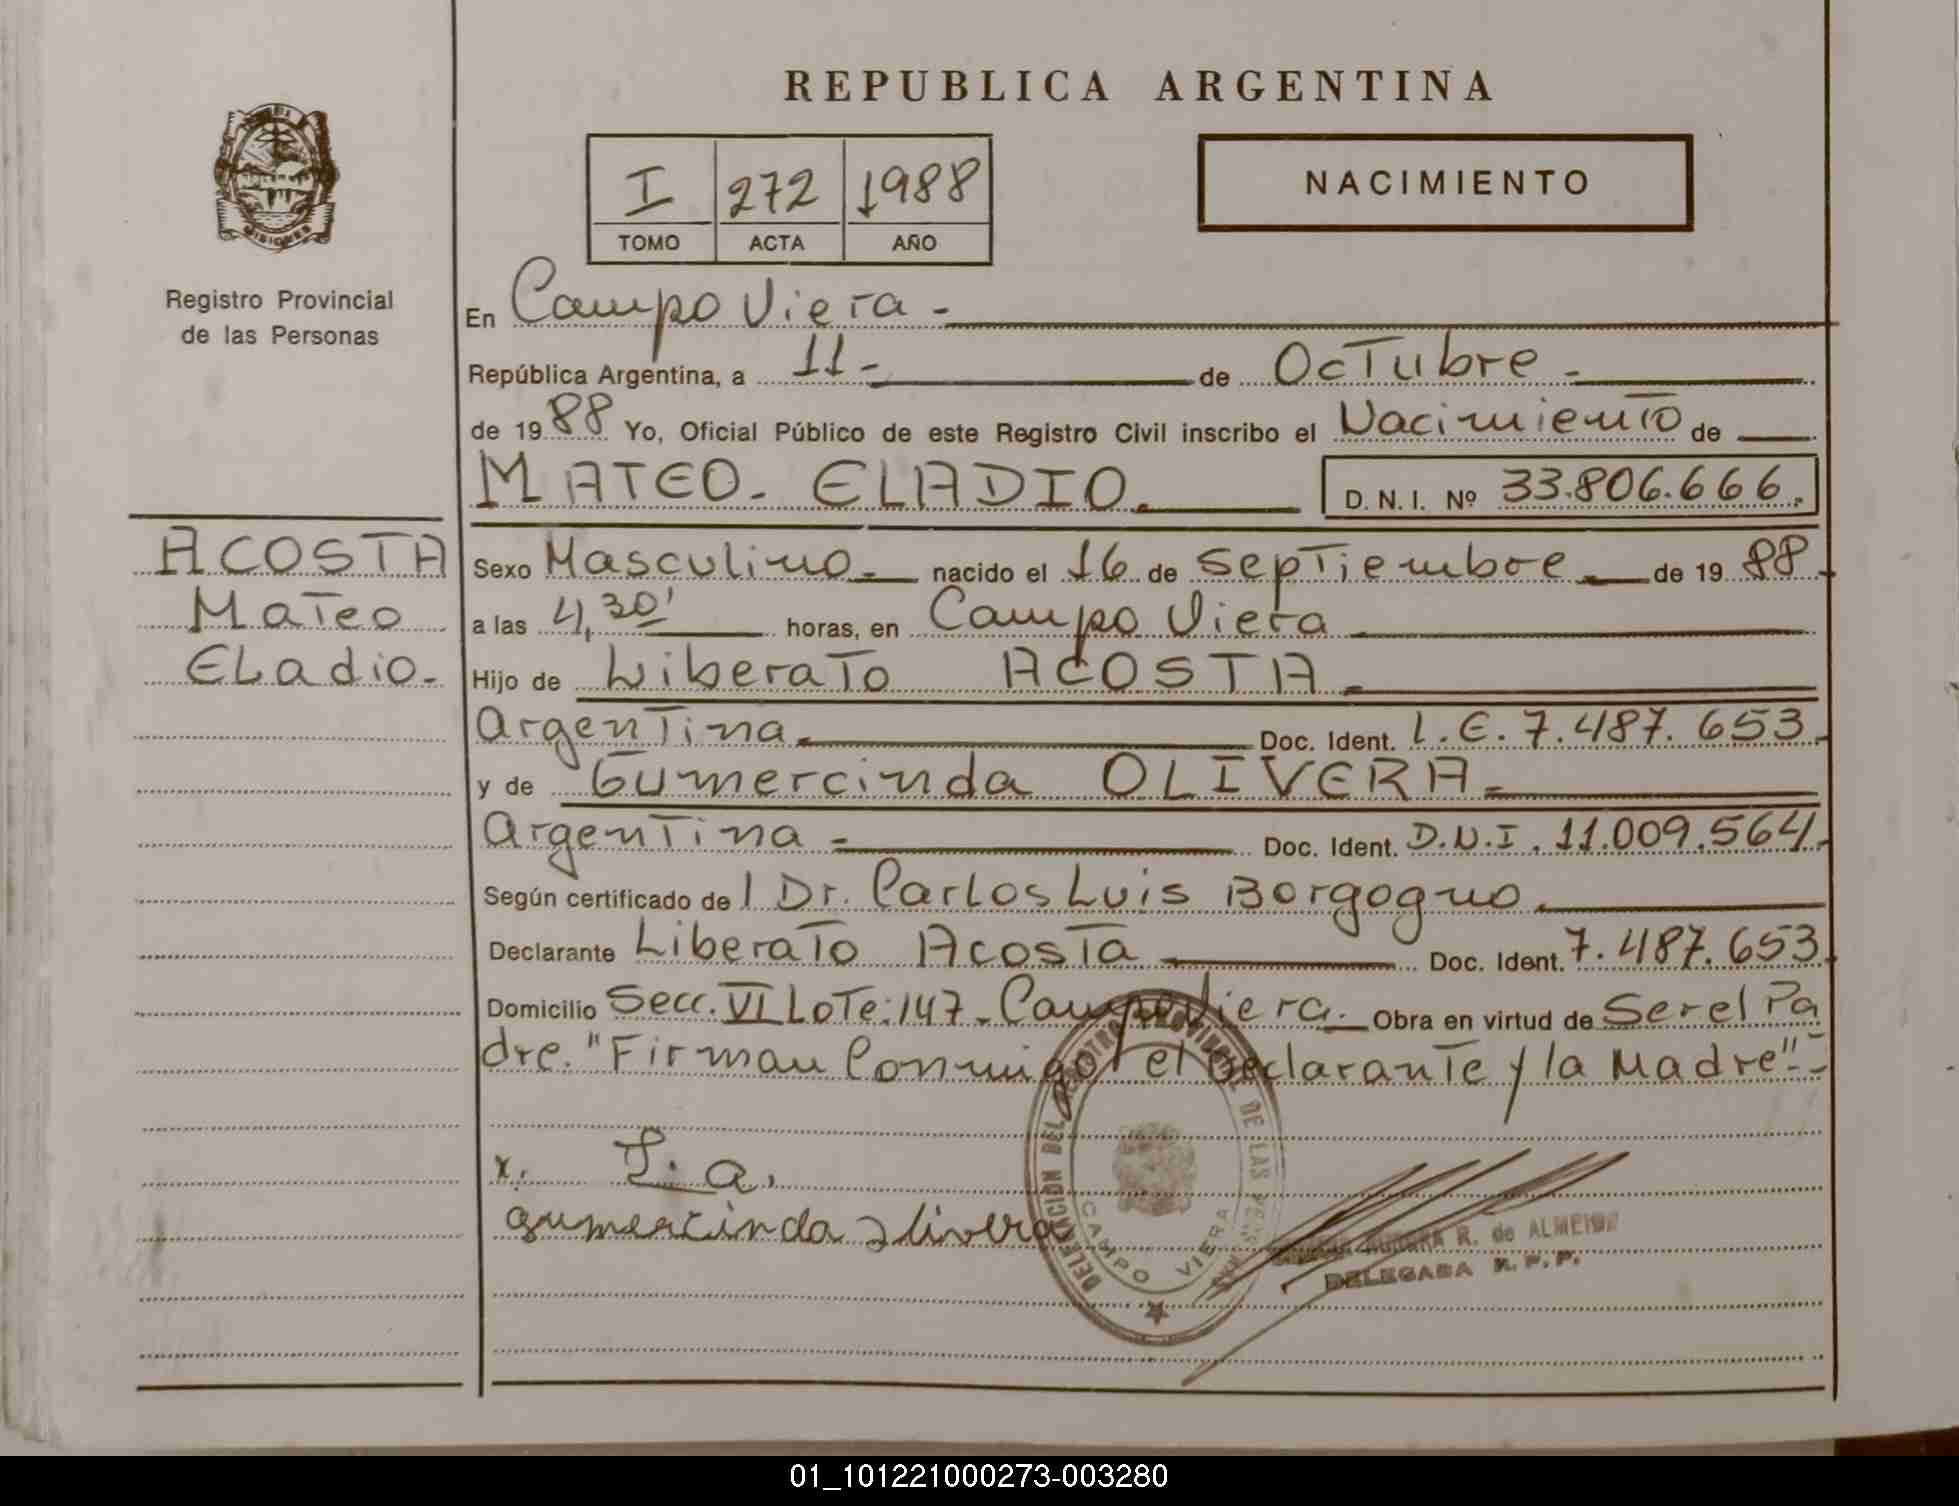 REPUBLICA ARGENTINA
MISIONES
Registro Provincial
de las Personas
I 272 1988
TOMO ACTA AÑO
NACIMIENTO
En Campo Viera -
República Argentina, a 11 - de Octubre -
de 1988 Yo, Oficial Público de este Registro Civil inscribo el Nacimiento de
MATEO - ELADIO. D. N. I. Nº 33.806.666.
ACOSTA
Mateo
ELadio -
Sexo Masculino - nacido el 16 de septiembre - de 1988 -
a las 4,30' horas, en Campo Viera
Hijo de Liberato ACOSTA -
Argentina - Doc. Ident. L.E. 7.487.653 -
y de Gumercinda OLIVERA -
Argentina - Doc. Ident. D.N.I. 11.009.564 -
Según certificado del Dr. Carlos Luis Borgogno -
Declarante Liberato Acosta Doc. Ident. 7.487.653
Domicilio Secc. VI Lote: 147 - Campo Viera - Obra en virtud de Ser el Pa
dre. "Firman Conmigo el declarante y la Madre" -
x. L. a.
gumercinda olivera
DELEGACION DEL REGISTRO PROVINCIAL DE LAS
CAMPO VIERA
R. de ALMEIDA
DELEGADA R. P. P.
01_101221000273-003280